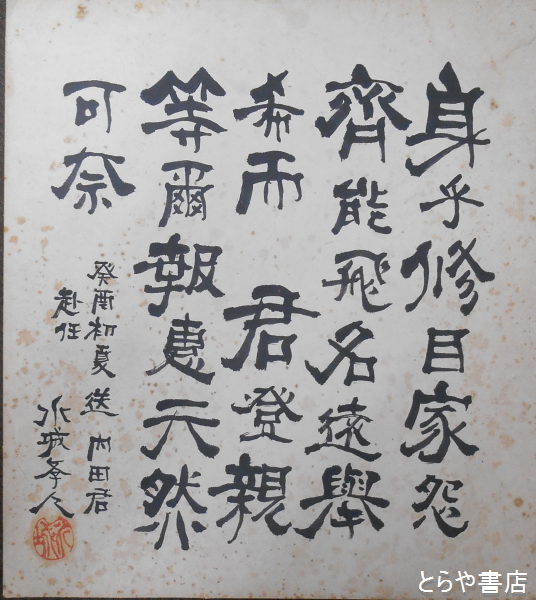 身乎修目家怨
齊能飛名遠舉
希而君登親
等爾報惠天然
可奈
癸酉初夏送内田君
赴任
水城人
とらや書店